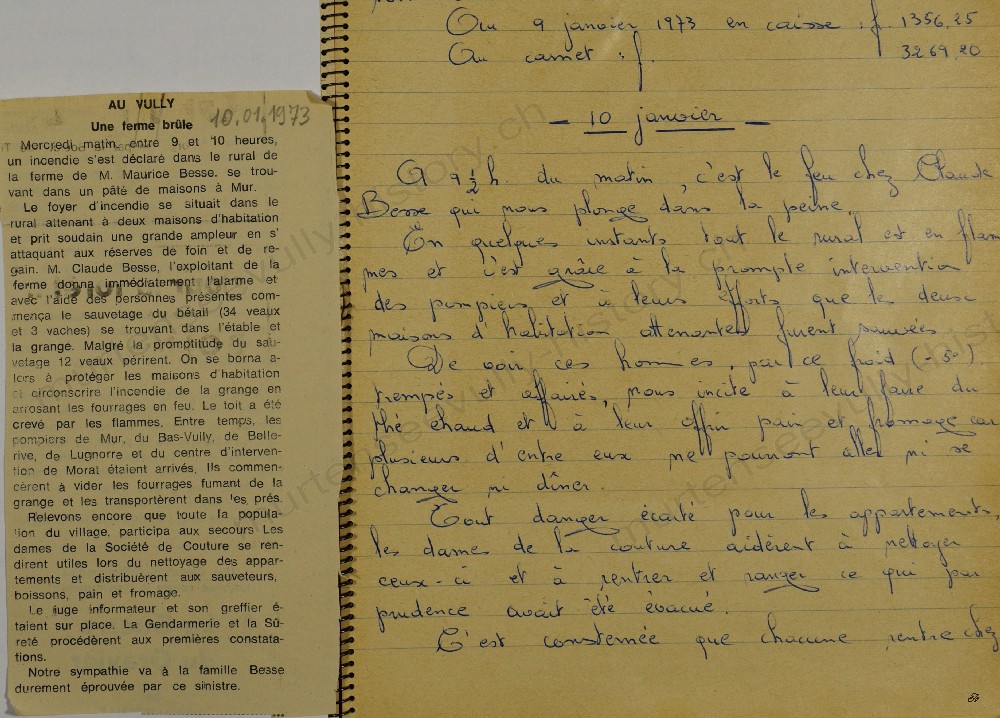 AU VULLY
Une ferme brûle
10.01.1973
Mercredi matin, entre 9 et 10 heures,
un incendie s'est déclaré dans le rural de
la ferme de M. Maurice Besse, se trou-
vant dans un pâté de maisons à Mur.
Le foyer d'incendie se situait dans le
rural attenant à deux maisons d'habitation
et prit soudain une grande ampleur en s'
attaquant aux réserves de foin et de re-
gain. M. Claude Besse, l'exploitant de la
ferme donna immédiatement l'alarme et
avec l'aide des personnes présentes com-
mença le sauvetage du bétail (34 veaux
et 3 vaches) se trouvant dans l'étable et
la grange. Malgré la promptitude du sau-
vetage 12 veaux périrent. On se borna a-
lors à protéger les maisons d'habitation
et circonscrire l'incendie de la grange en
arrosant les fourrages en feu. Le toit a été
crevé par les flammes. Entre temps, les
pompiers de Mur, du Bas-Vully, de Belle-
rive, de Lugnorre et du centre d'interven-
tion de Morat étaient arrivés. Ils commen-
cèrent à vider les fourrages fumant de la
grange et les transportèrent dans les prés.
Relevons encore que toute la popula-
tion du village, participa aux secours Les
dames de la Société de Couture se ren-
dirent utiles lors du nettoyage des appar-
tements et distribuèrent aux sauveteurs,
boissons, pain et fromage.
Le juge informateur et son greffier é-
taient sur place. La Gendarmerie et la Sû-
reté procédèrent aux premières constata-
tions.
Notre sympathie va à la famille Besse
durement éprouvée par ce sinistre.
Au 9 janvier 1973 en caisse : f 1356,25
Au carnet : f. 3269,20
- 10 janvier -
A 9 1/2 h du matin, c'est le feu chez Claude
Besse qui nous plonge dans la peine.
En quelques instants tout le rural est en flam
mes et c'est grâce à la prompte intervention
des pompiers et à leurs efforts que les deux
maisons d'habitation attenantes furent sauvées
De voir ces hommes, par ce froid (-5°)
trempés et affairés, nous incite à leur faire du
thé chaud et à leur offrir pain et fromage car
plusieurs d'entre eux ne pourront aller ni se
changer ni dîner.
Tout danger écarté pour les appartements,
les dames de la couture aidèrent à nettoyer
ceux-ci et à rentrer et ranger ce qui par
prudence avait été évacué.
C'est consternée que chacune rentre chez
murtenseevullyhistory.ch